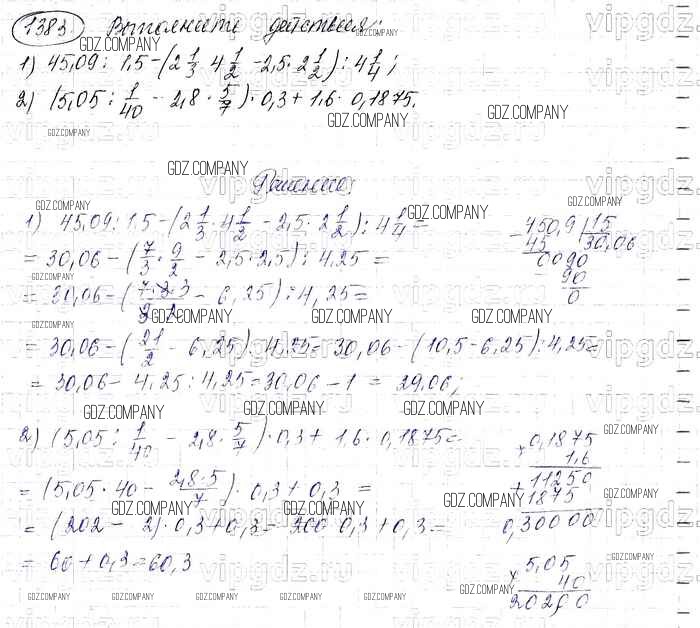 1383. Выполните действия:
1) 45,09 : 1,5 - (2 1/3 · 4 1/2 - 2,5 · 2 1/2) : 4 1/4;
2) (5,05 : 1/40 - 2,8 · 5/7) · 0,3 + 1,6 · 0,1875.
Решение:
1) 45,09 : 1,5 - (2 1/3 · 4 1/2 - 2,5 · 2 1/2) : 4 1/4 =
= 30,06 - (7/3 · 9/2 - 2,5 · 2,5) : 4,25 =
= 30,06 - (7·3·3/3·2 - 6,25) : 4,25 =
= 30,06 - (21/2 - 6,25) : 4,25 = 30,06 - (10,5 - 6,25) : 4,25 =
= 30,06 - 4,25 : 4,25 = 30,06 - 1 = 29,06;
450,9 | 15
45 30,06
0090
90
0
2) (5,05 : 1/40 - 2,8 · 5/7) · 0,3 + 1,6 · 0,1875 =
= (5,05 · 40 - 2,8·5/7) · 0,3 + 0,3 =
= (202 - 2) · 0,3 + 0,3 = 200 · 0,3 + 0,3 =
= 60 + 0,3 = 60,3
× 0,1875
1,6
+ 11250
1875
0,30000
× 5,05
40
202,00
GDZ.COMPANY
vipgdz.ru